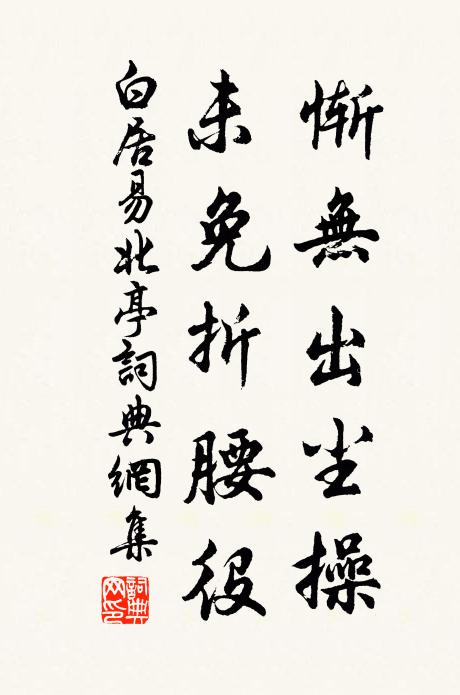 慚無出尘操
未免折腰役
白居易北亭詞典網集
詞典
网印